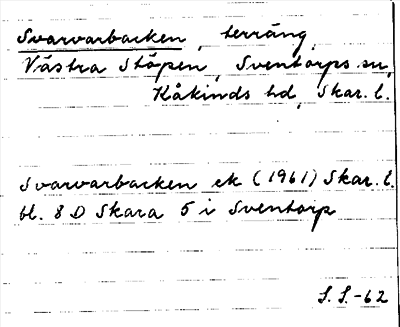 Svarvarbacken, terräng,
Västra Stöpen, Sventorps sn,
Kåkinds hd, Skar. l.
Svarvarbacken ek (1961) Skar. l.
bl. 8 D Skara 5 i Sventorp
S. S. -62